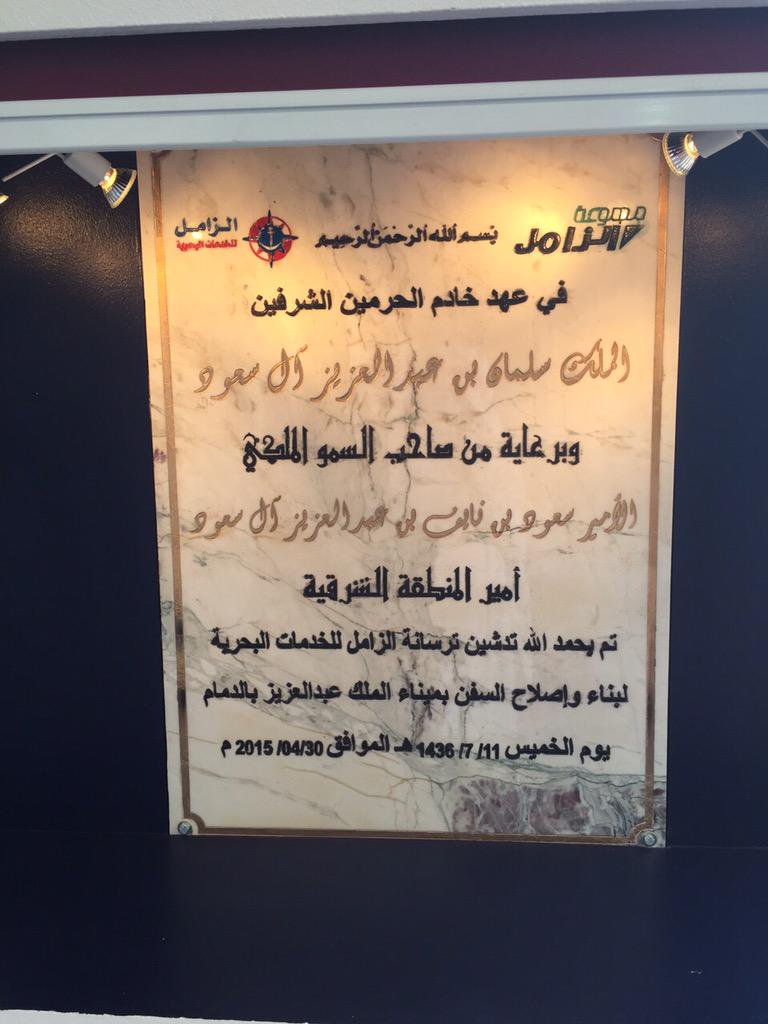 مجموعة الزامل
بسم الله الرحمن الرحيم
الزامل
للخدمات البحرية
في عهد خادم الحرمين الشرفين
الملك سلمان بن عبدالعزيز آل سعود
وبرعاية من صاحب السمو الملكي
الأمير سعود بن نايف بن عبدالعزيز آل سعود
أمير المنطقة الشرقية
تم بحمد الله تدشين ترسانة الزامل للخدمات البحرية
لبناء وإصلاح السفن بميناء الملك عبدالعزيز بالدمام
يوم الخميس 11/ 7/ 1436 هـ الموافق 2015/04/30 م